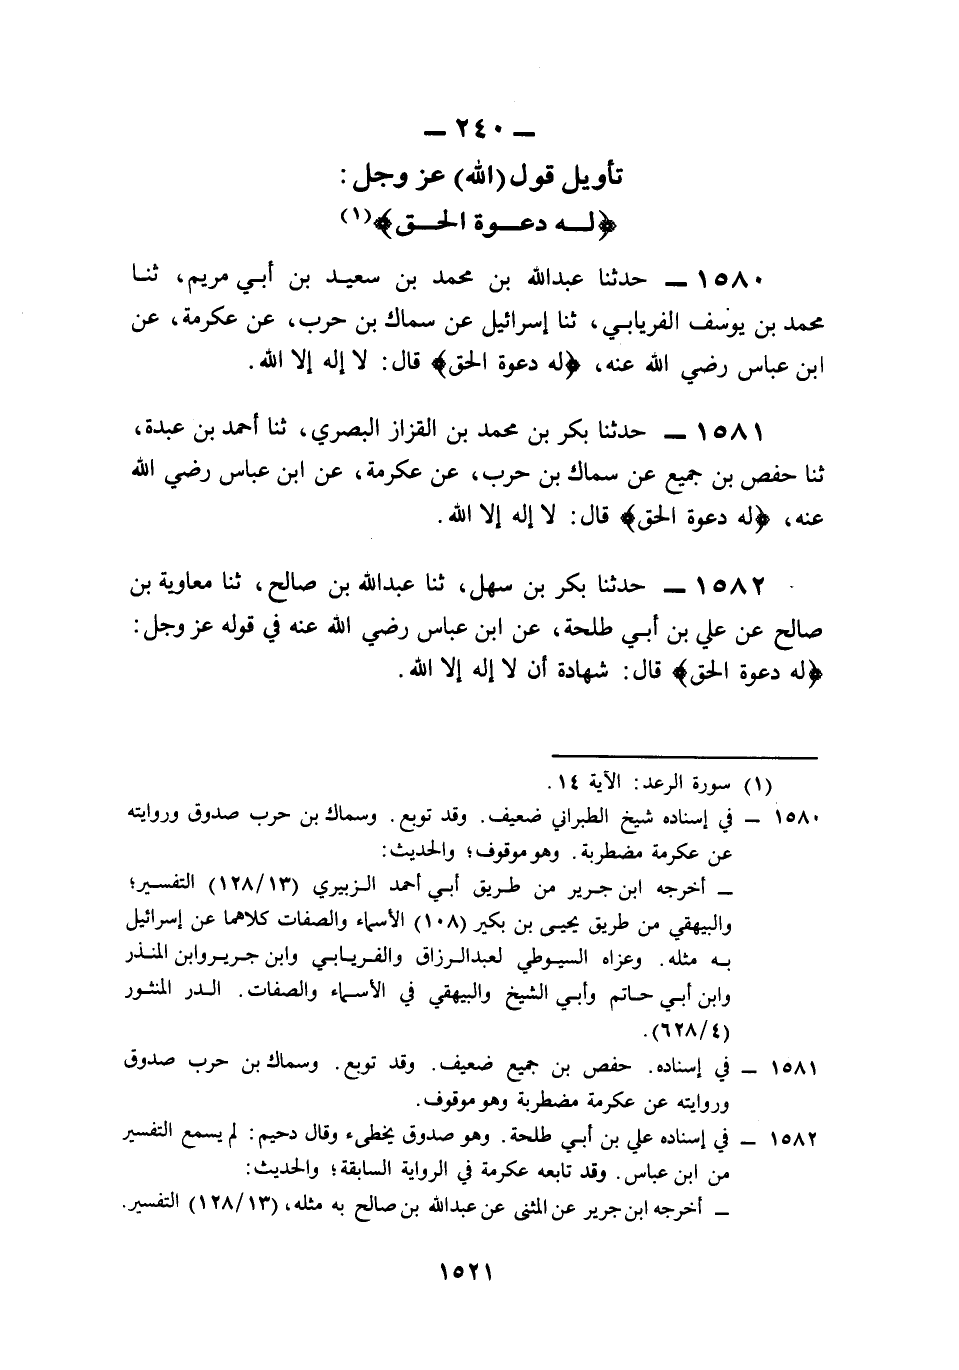 ـ ٢٤٠ ـ
تأويل قول (الله) عز وجل :
﴿لـــه دعـــوة الحـــق﴾(١)
١٥٨٠ ـ حدثنا عبدالله بن محمد بن سعيد بن أبي مريم، ثنا
محمد بن يوسف الفريابي، ثنا إسرائيل عن سماك بن حرب، عن عكرمة، عن
ابن عباس رضي الله عنه، ﴿له دعوة الحق﴾ قال: لا إله إلا الله.
١٥٨١ ـ حدثنا بكر بن محمد بن القزاز البصري، ثنا أحمد بن عبدة،
ثنا حفص بن جميع عن سماك بن حرب، عن عكرمة، عن ابن عباس رضي الله
عنه، ﴿له دعوة الحق﴾ قال: لا إله إلا الله.
١٥٨٢ ـ حدثنا بكر بن سهل، ثنا عبدالله بن صالح، ثنا معاوية بن
صالح عن علي بن أبي طلحة، عن ابن عباس رضي الله عنه في قوله عز وجل:
﴿له دعوة الحق﴾ قال: شهادة أن لا إله إلا الله.
(١) سورة الرعد: الآية ١٤.
١٥٨٠ ـ في إسناده شيخ الطبراني ضعيف. وقد توبع. وسماك بن حرب صدوق وروايته
عن عكرمة مضطربة. وهو موقوف؛ والحديث:
ـ أخرجه ابن جرير من طريق أبي أحمد الزبيري (١٢٨/١٣) التفسير؛
والبيهقي من طريق يحيى بن بكير (١٠٨) الأسماء والصفات كلاهما عن إسرائيل
به مثله. وعزاه السيوطي لعبدالرزاق والفريابي وابن جرير وابن المنذر
وابن أبي حاتم وأبي الشيخ والبيهقي في الأسماء والصفات. الدر المنثور
(٦٢٨/٤).
١٥٨١ ـ في إسناده. حفص بن جميع ضعيف. وقد توبع. وسماك بن حرب صدوق
وروايته عن عكرمة مضطربة وهو موقوف.
١٥٨٢ ـ في إسناده علي بن أبي طلحة. وهو صدوق يخطىء وقال دحيم: لم يسمع التفسير
من ابن عباس. وقد تابعه عكرمة في الرواية السابقة؛ والحديث:
ـ أخرجه ابن جرير عن المثنى عن عبدالله بن صالح به مثله، (١٢٨/١٣) التفسير.
١٥٢١